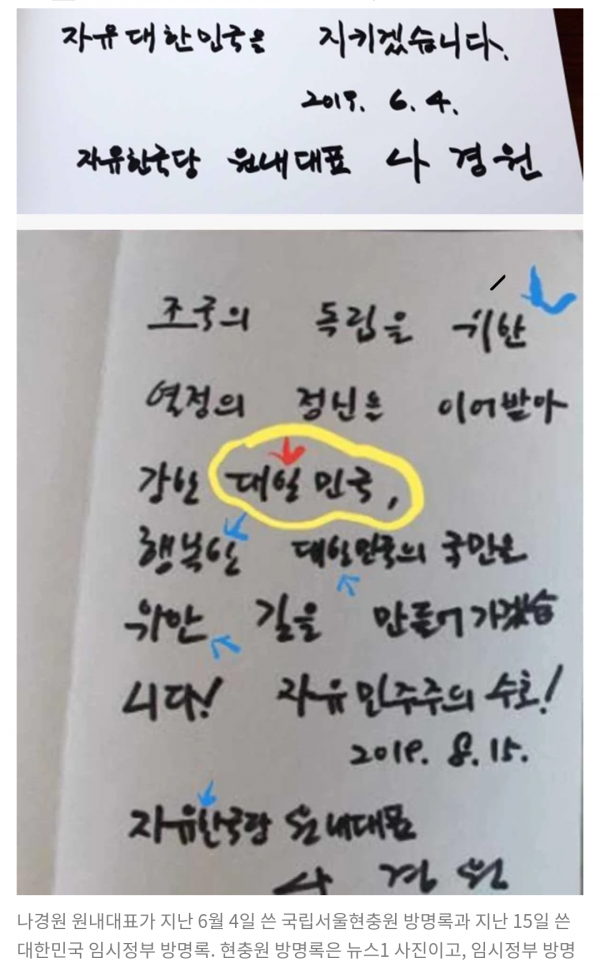 자유 대한민국을 지키겠습니다.
2019. 6. 4.
자유한국당 원내대표 나 경 원
조국의 독립을 위한
열정의 정신을 이어받아
강한 대일민국,
행복한 대한민국의 국민을
위한 길을 만들어 가겠습
니다! 자유 민주주의 수호!
2019. 8. 15.
자유한국당 원내대표
나 경 원
나경원 원내대표가 지난 6월 4일 쓴 국립서울현충원 방명록과 지난 15일 쓴
대한민국 임시정부 방명록. 현충원 방명록은 뉴스1 사진이고, 임시정부 방명